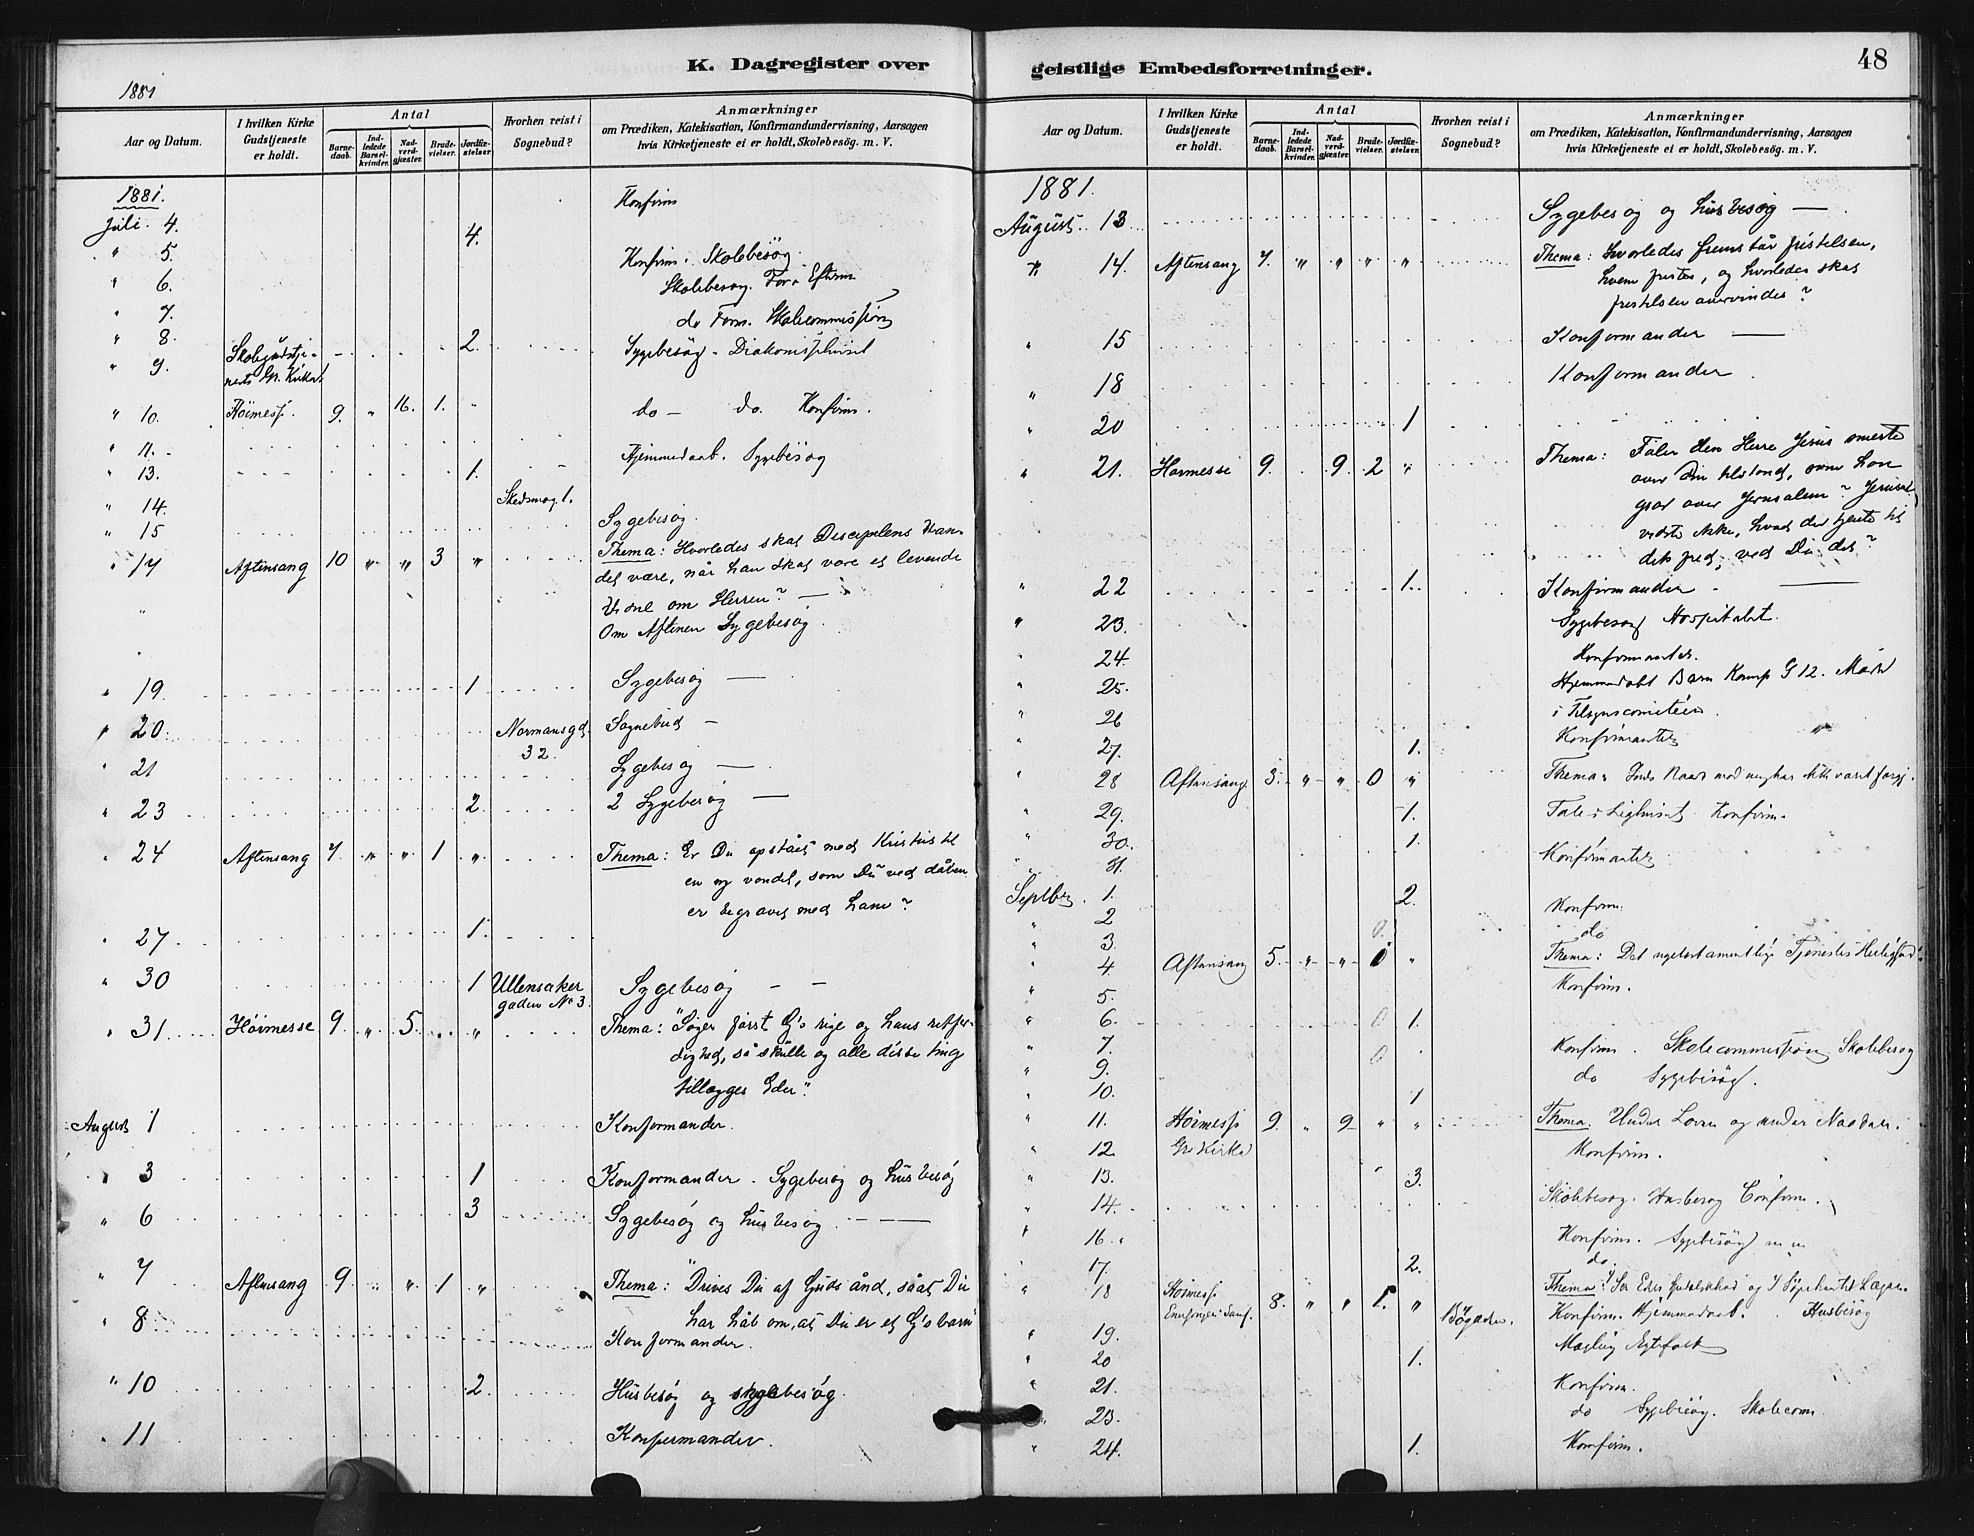 K. Dagregister over
1881
Aar og Datum.
I hvilken Kirke Gudstjeneste er holdt.
Antal
Barne-daab.
Ind-ledede Barsel-kvinder.
Nad-verd-gjæster.
Brude-vielser.
Jordfæ-stelser
Hvorhen reist i Sognebud?
Anmærkninger
om Prædiken, Katekisation, Konfirmandundervisning, Aarsagen
hvis Kirketjeneste ei er holdt, Skolebesøg. m. V.
1881.
Juli 4. 4. Konfirm
" 5. Konfirm. Skolebesøg.
" 6. Skolebesøg. For o Efterm
" 7. do Form. Skolecommission
" 8. 2. Sygebesøg - Diakonissehuset
" 9.
" 10. Høimesse. 9. " 16. 1. " do - do. Konfirm.
" 11. Hjemmedaab. Sygebesøg
" 13. 1.
" 14. Skedsmog. 1.
" 15 Sygebesøg.
" 17 Aftensang 10 " " 3 " Thema: Hvorledes skal Disciplens Van-
del være, når han skal være et levende
Vidne om Herren? —
Om Aftenen Sygebesøg.
" 19. 1 Sygebesøg —
" 20. Normansgd. 32. Sognebud —
" 21 Sygebesøg —
" 23 2 2 Sygebesøg —
" 24 Aftensang 7. " " 1 " Thema: Er Du opstået med Kristus til
en ny vandel, som Du ved dåben
er begravet med ham?
" 27. 1.
" 30 1 Ullensaker gaden No 3. Sygebesøg — —
" 31. Høimesse 9. " 5. " Thema: "Søger først G's rige og hans retfær-
dighed, så skulle og alle disse ting
tillægges Eder".
August 1 Konfirmander.
" 3 1 Konfirmander. Sygebesøg og husbesøg
" 6 3 Sygebesøg og husbesøg. —
" 7 Aftensang 9. " " 1 " Thema: "Drives Du af Guds ånd, såat Du
har håb om, at Du er et G's barn
" 8 Konfirmander.
" 10 2 Husbesøg og sygebesøg.
" 11 Konfirmander.
geistlige Embedsforretninger.
48
Aar og Datum.
I hvilken Kirke Gudstjeneste er holdt.
Antal
Barne-daab.
Ind-ledede Barsel-kvinder.
Nad-verd-gjæster.
Brude-vielser.
Jordfæ-stelser
Hvorhen reist i Sognebud?
Anmærkninger
om Prædiken, Katekisation, Konfirmandundervisning, Aarsagen
hvis Kirketjeneste ei er holdt, Skolebesøg. m. V.
1881.
August 13 Sygebesøg og husbesøg —
" 14. Aftensang 7. " " " " Thema: hvorledes fremstår fristelsen,
hvem frister, og hvorledes skal
fristelsen overvindes?
" 15 Konfirmander —
" 18 Konfirmander
" 20 1
" 21. Høimesse 9. 9. 2 " Thema: Føler den Herre Jesus smerte
over Din tilstand, som han
græd over Jerusalem? Jerusal.
vidste ikke, hvad der tjente til
dets fred, ved Du det?
" 22 1. Konfirmander —
" 23. Sygebesøg Hospitalet.
" 24. Konfirmanter.
" 25. Hjemmedøbt Barn Kamp G 12. Møde
" 26 i Tilsynscomiteen.
" 27. 1. Konfirmanter
" 28 Aftensang 3. " " 0 "
" 29. 1. Tale i Lighuset. Konfirm.
" 30. 1.
" 31. Konfirmanter
Septbr. 1. 2. Konfirm.
" 2 do
" 3. 0.
" 4 Aftensang 5. " " 0 " Thema: Det nytestamentlige Tjenestes Herlighed.
" 5. Konfirm.
" 6. 0 1.
" 7. 0 Konfirm. Skolecommission Skolebesøg
" 9. do Sygebesøg.
" 10. 1
" 11. Høimesse 9. " 9 " " Thema. Under Loven og under Naaden.
" 12. Gr Kirke Konfirm.
" 13. 3.
" 14. Skolebesøg. Husbesøg Confirm.
" 16. Konfirm. Sygebesøg m m
" 17. 2. do
" 18 Høimesse 8. " " 1. "
Bøgaden. Konfirm. Hjemmedaab. Husbesøg
" 19. Mægling Egtefolk
" 20 1.
" 21. Konfirm.
" 23. do Sygebesøg. Skolecom
" 24. 1. Konfirm.